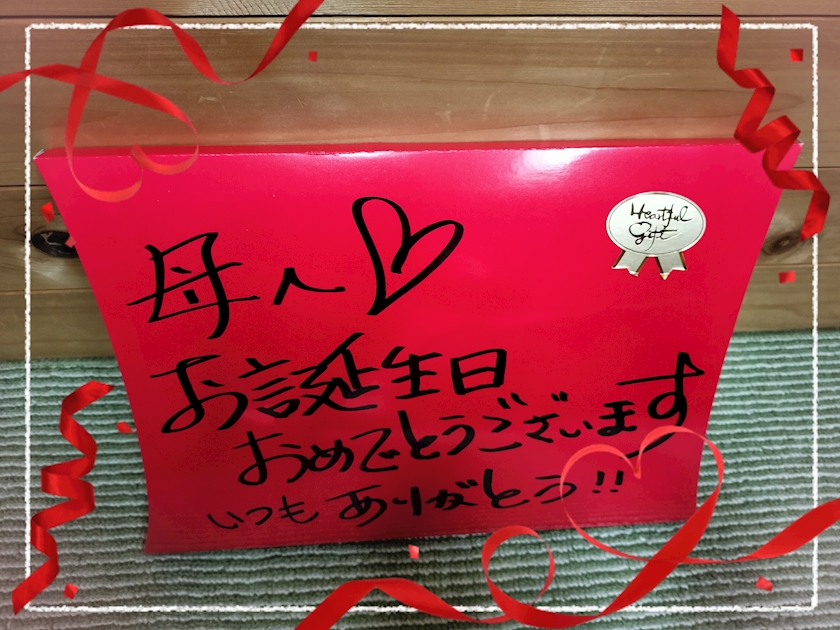 Heartful
Gift
母へ♡
お誕生日
おめでとうございます
いつもありがとう!!